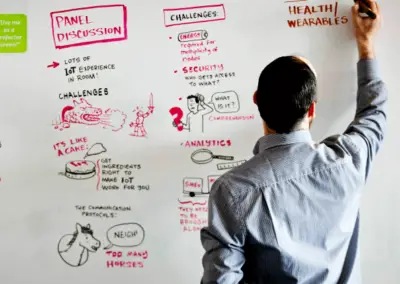 PANEL
DISCUSSION
→ LOTS OF
IoT EXPERIENCE
IN ROOM!
CHALLENGES
IT'S LIKE
A CAKE:
GET
INGREDIENTS
RIGHT TO
MAKE IoT
WORK FOR YOU
THE COMMUNICATION
PROTOCOLS:
NEIGH
TOO MANY
HORSES
CHALLENGES:
ENERGY
required for
multiplicity of
nodes
SECURITY
WHO GETS ACCESS
TO WHAT?
WHAT
IS IT?
ANALYTICS
THEY NEED
TO BE
HEALTH/
WEARABLES